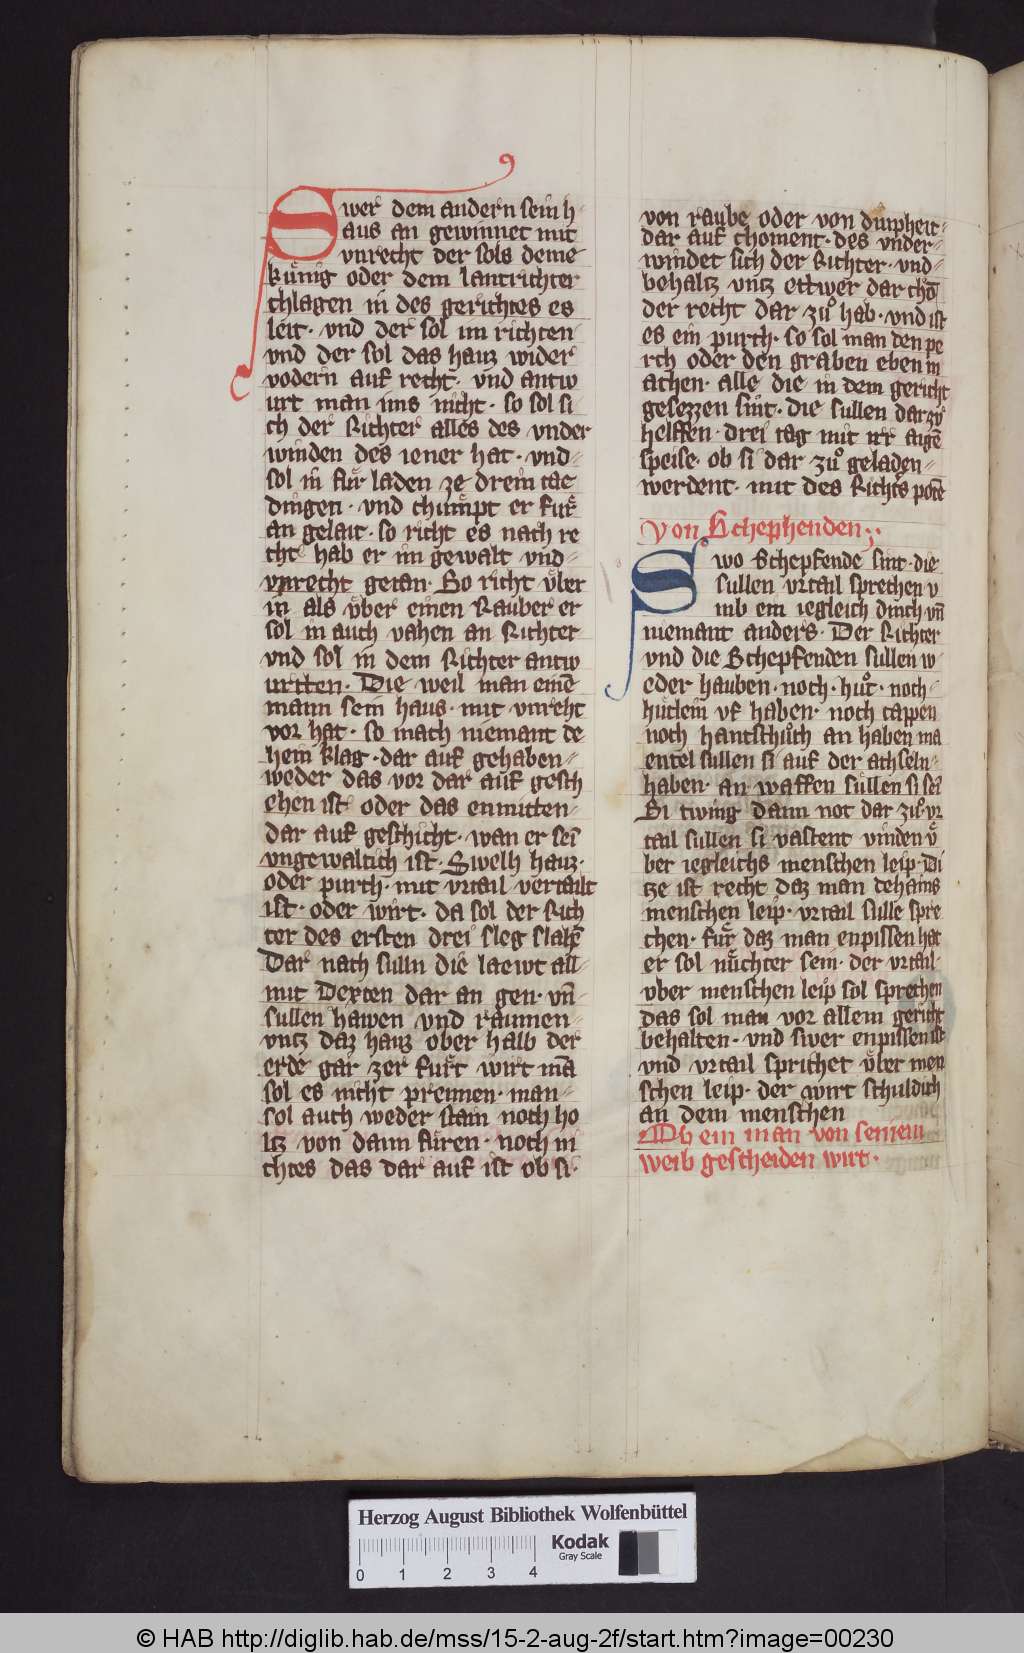 Swer dem andern sein h
aus an gewinnet mit
vnrecht der sols deme
kuͤnig oder dem lantrichter
chlagen in des gerichtes es
leit· vnd der sol im richten
vnd der sol das hauz wider
vodern auf recht· vnd antw
urt man ims nicht· so sol si
ch der Richter alles des vnder
winden des iener hat· vnd
sol in fuͤr laden ze drein tae
dingen· vnd chuͤmpt er fuͤr
an gelait· so richt es nach re
cht hab er im gewalt vnd
vnrecht getan· So richt vͤber
in als vͤber einen Rauber er
sol in auch vahen an Richter
vnd sol in dem Richter antw
urtten· Die weil man einē
mann sein haus· mit vnreht
vor hat· so mach niemant de
hein klag· dar auf gehaben
weder das vor dar auf gesch
ehen ist oder das enmitten
dar auf geschicht· wan er sein
vngewaltich ist· Swelh hauz·
oder purch· mit vrtail vertailt
ist· oder wirt· da sol der Rich
ter des ersten drei sleg slahē
Dar nach sulln die laewt all
mit Dexten dar an gen· vn̄
sullen hawen vnd raumen
vntz daz hauz ober halb der
erde gar zer fuͤrt wirt mā
sol es nicht prennen· man
sol auch weder stain noch ho
ltz von dann fuͤren· noch ni
chtes das dar auf ist ob si·
von raube oder von diupheit
dar auf choment· des vnder
windet sich der Richter· vnd
behaltz vntz ettwer dar chōͤ
der recht dar zuͦ hab· vnd ist
es ein purch· so sol man den pe
rch oder den graben eben m
achen· alle die in dem gericht
gesezzen sint· die sullen dar zuͦ
helffen· drei tag mit irr aigē
speise· ob si dar zuͦ geladen
werdent· mit des Richts potē
Von Schephenden
Swo Schepfende sint· die
sullen vrtail sprechen v
mb ein iegleich dinch vn̄
niemant anders· Der Richter
vnd die Schepfenden sullen w
eder hauben· noch· huͦt· noch
huͤtlein vf haben· noch cappen
noch hantschuͦch an haben ma
entel sullen si auf der achseln
haben· an waffen suͤllen si sei
Si twing dann not dar zuͦ· vr
tail sullen si vastent vinden vͤ
ber iegleichs menschen leip· Di
tze ist recht daz man dehains
menschen leip· vrtail sulle spre
chen· fuͤr daz man enpissen hat
er sol nuͤchter sein· der vrtail
vber menschen leip sol sprechen
das sol man vor allem gericht
behalten· vnd swer enpissen ist
vnd vrtail sprichet vͤber men
schen leip· der wirt schuldich
an dem menschen
Ob ein man von seinem
weib gescheiden wirt·
Herzog August Bibliothek Wolfenbüttel
0 1 2 3 4
Kodak
Gray Scale
© HAB http://diglib.hab.de/mss/15-2-aug-2f/start.htm?image=00230